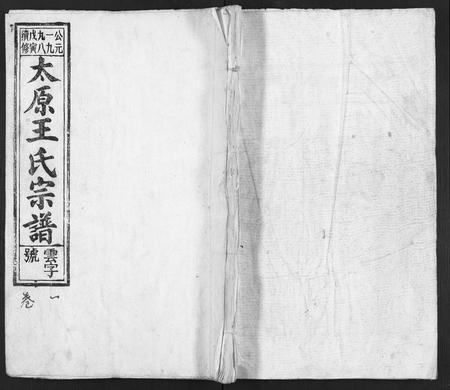 公元一九九八戊寅續修
太原王氏宗譜
雲字號
卷一